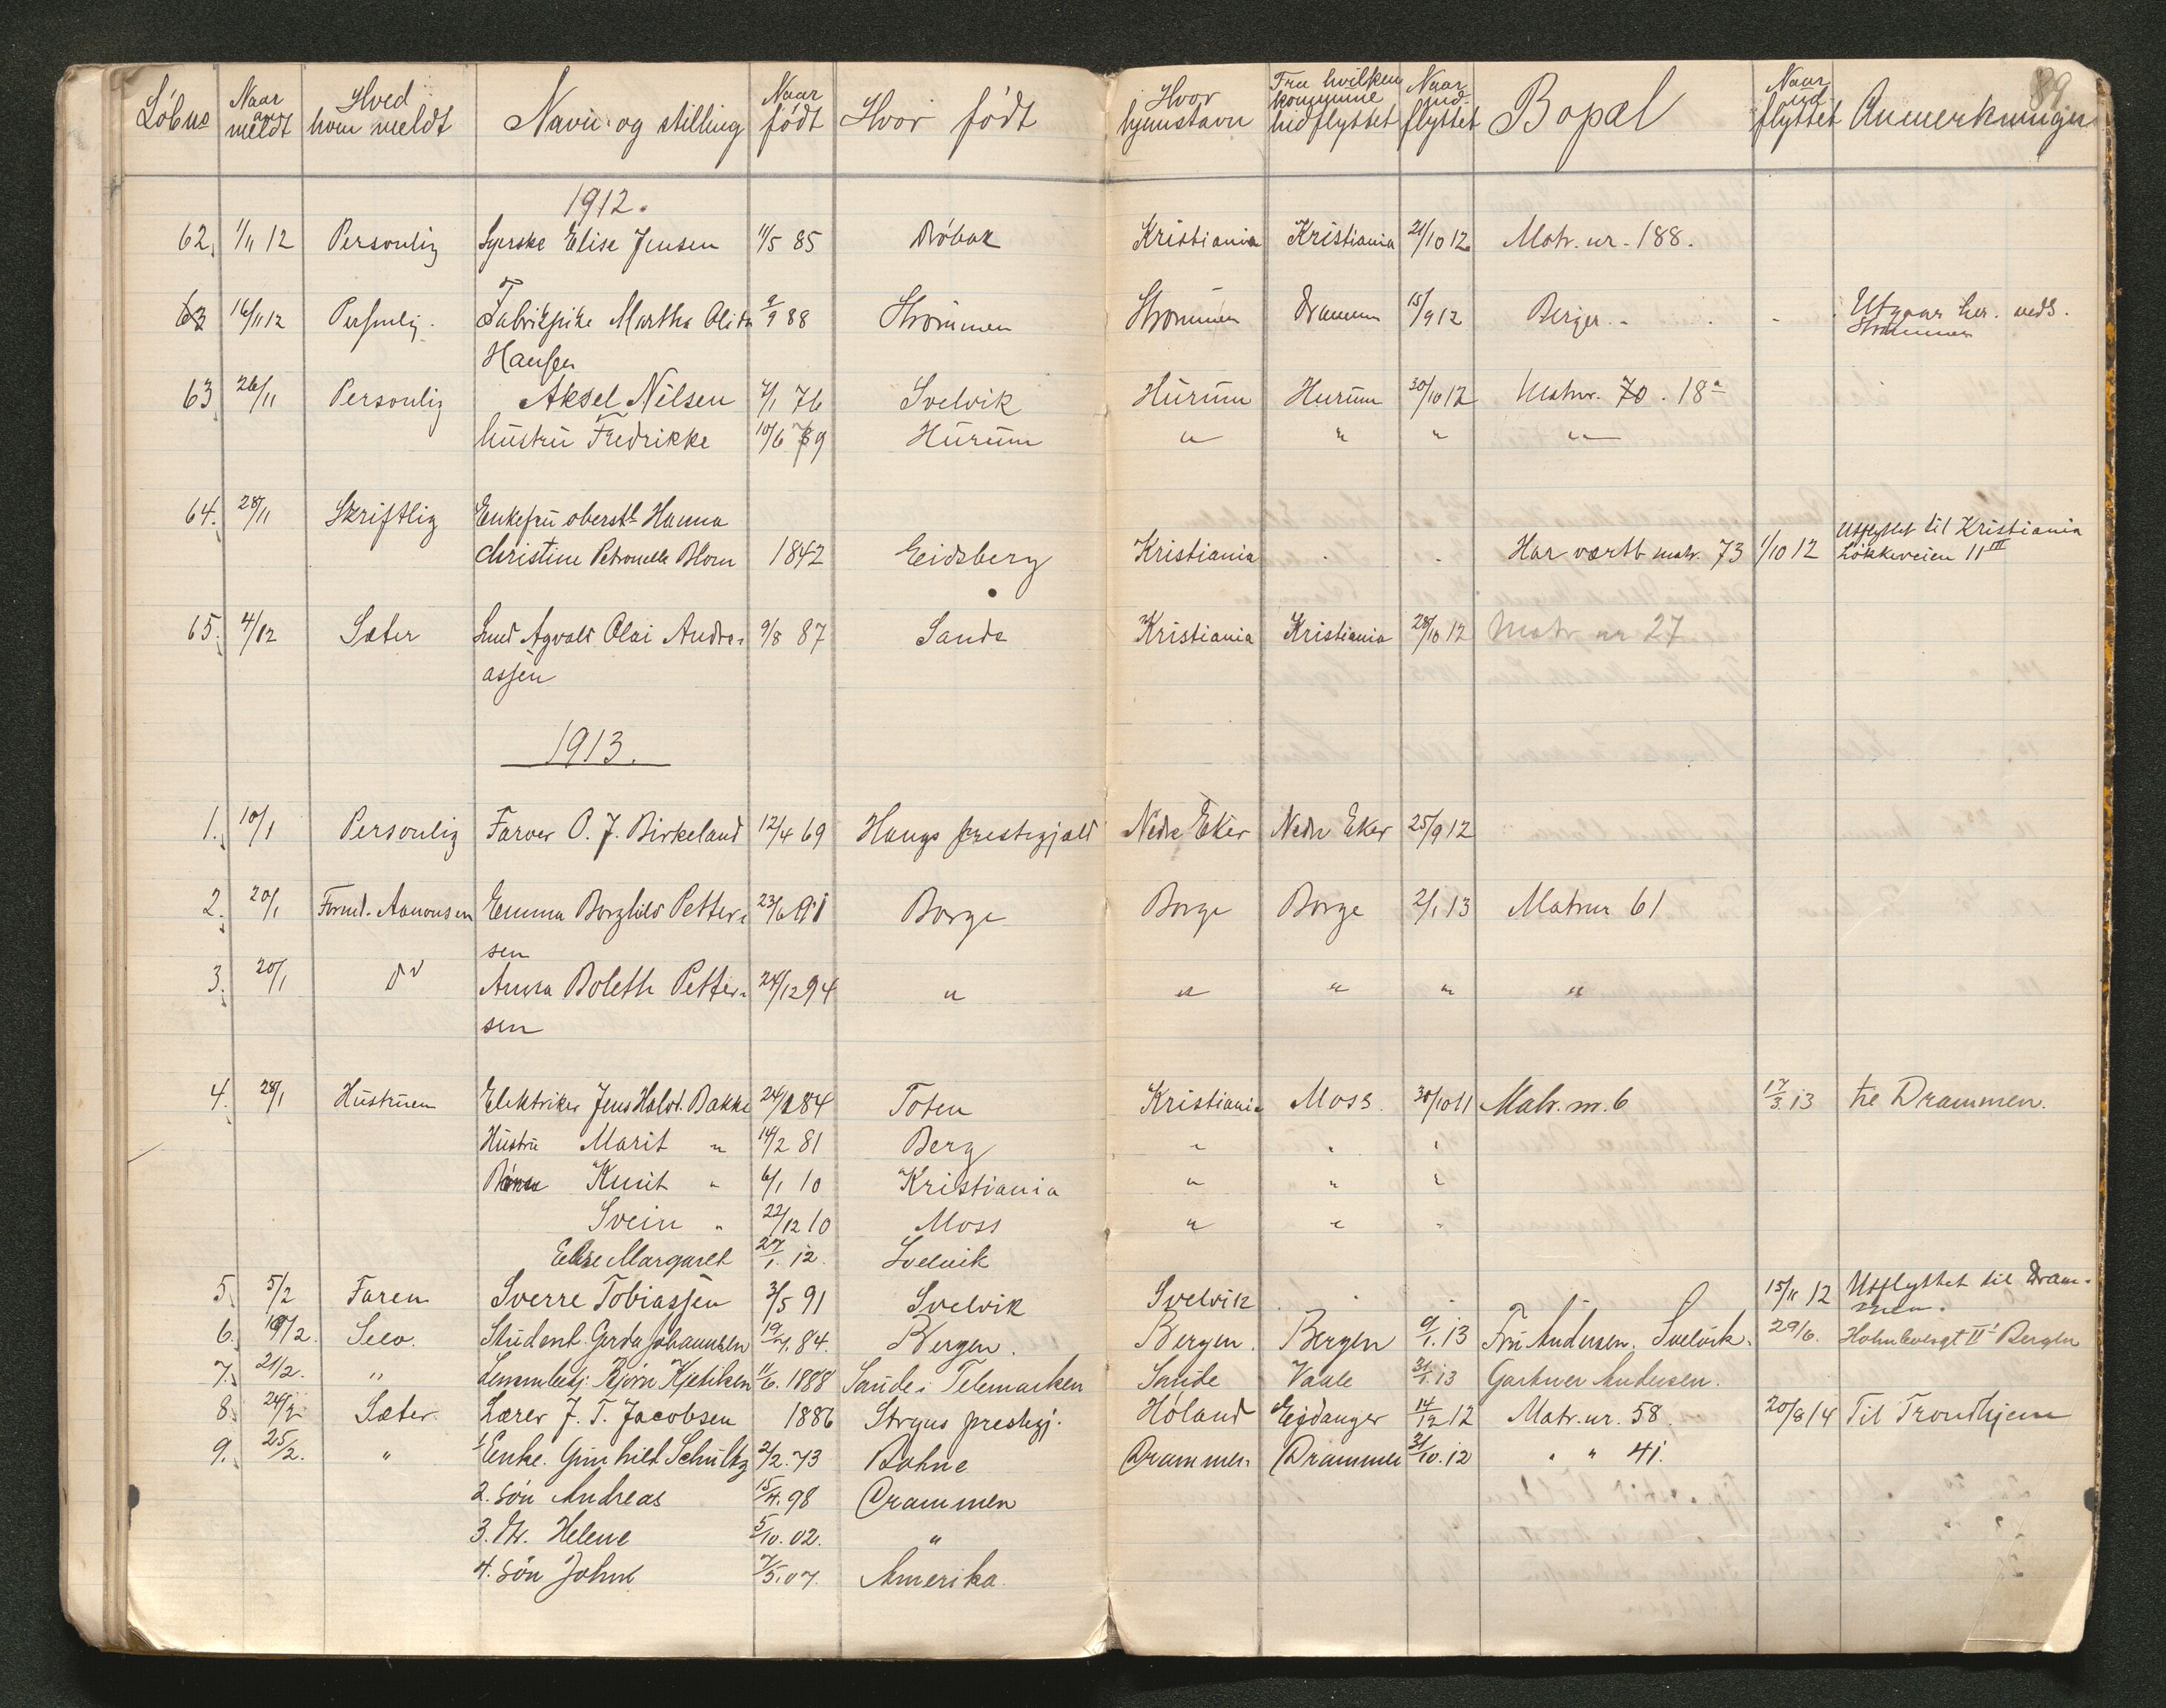 89
Løbno Naar anmeldt Hved hvem meldt Navn og stilling Naar født Hvor født Hvor hjemstavn Fra hvilken kommune hidflyttet Naar indflyttet Bopæl Naar udflyttet Anmerkninger
1912.
62. 1/11 12 Personlig Syerske Elise Jensen 11/5 85 Drøbak Kristiania Kristiania 21/10 12 Matr. nr. 188.
63 16/11 12 Personlig. Fabrikpike Martha Olida 9/9 88 Strømmen Strømmen Drammen 15/9 12 Berger. Utgaar her. neds.
Hansen Strømmen
63 26/11 Personlig Aksel Nilsen 7/1 76 Svelvik Hurum Hurum 30/10 12 Matrnr. 70. 18a
hustru Fredrikke 10/6 79 Hurum " " " "
64. 28/11 Skriftlig Enkefru oberstl. Hanna
Christine Petronelle Blom 1842 Eidsberg Kristiania Har været matr. 73 1/10 12 Utflyttet til Kristiania
Løkkeveien 11 III
65. 4/12 Sæter Smed Agvald Olai Andre- 9/8 87 Sande Kristiania Kristiania 28/10 12 Matr nr 27
assen
1913.
1. 10/1 Personlig Farver O. J. Birkeland 12/4 69 Haugs prestegjæld Nedre Eker Nedre Eker 25/9 12
2. 20/1 Formd. Aamonsen Emma Borghild Petter- 23/6 91 Borge Borge Borge 2/1 13 Matrnr 61
sen
3. 20/1 Do Anna Boleth Petter- 24/12 94 " " " " "
sen
4. 28/1 Hustruen Elektriker Jens Halvd. Bakke 24/1 84 Toten Kristiania Moss. 30/10 11 Matr. nr. 6 17/3 13 til Drammen.
Hustru Marit " 14/2 81 Berg " " "
Børn Knut " 6/1 10 Kristiania " " "
Svein " 22/12 10 Moss " " "
Else Margaret 27/1. 12. Svelvik
5. 5/2 Faren Sverre Tobiassen 3/5 91 Svelvik Svelvik 15/11 12 Utflyttet til Dram-
men.
6. 19/2. Selv. Student. Gerda Johannesen 19/4. 84. Bergen. Bergen. Bergen 9/1. 13 Fru Andersen. Svelvik. 29/6. Bergen
7. 21/2. " Bjørn Kjetilsen 11/6. 1888 Saude i Telemarken Saude Vaale 31/1. 13 Gartner Andersen.
8. 24/2 Sæter. Lærer J. T. Jacobsen 1886 prestegj. Høland Eidanger 14/12 12 Matr. nr. 58. 20/8 14 Til Trondhjem
9. 25/2. " 1 Enke. Gunhild Schultz 2/2. 73 Botne Drammen Drammen 31/10. 12 " " 41.
2. søn Andreas 15/4. 98 Drammen
3. Dtr. Helene 5/10. 02. "
4. søn John 7/5. 07. Amerika.